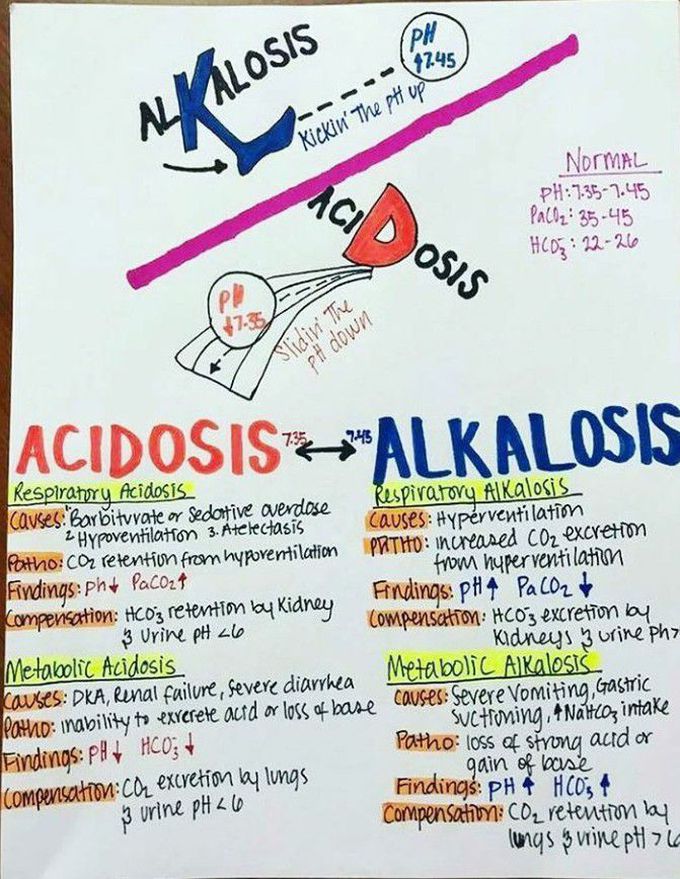 ALKALOSIS
pH
↑7.45
Kickin' The pH up
NORMAL
pH: 7.35-7.45
PaCO₂: 35-45
HCO₃⁻: 22-26
ACIDOSIS
pH
↓7.35
Slidin' The
pH down
ACIDOSIS 7.35 ↔ 7.45 ALKALOSIS
Respiratory Acidosis
Causes: 1. Barbituvrate or Sedative overdose
2 Hypoventilation 3. Atelectasis
Patho: CO₂ retention from hypoventilation
Findings: Ph↓ PaCO₂↑
Compensation: HCO₃ retention by Kidney
& Urine pH <6
Metabolic Acidosis
Causes: DKA, Renal failure, Severe diarrhea
Patho: inability to exrerete acid or loss of base
Findings: PH↓ HCO₃⁻↓
Compensation: CO₂ excretion by lungs
& urine pH <6
Respiratory Alkalosis
Causes: Hyperventilation
PATHO: increased CO₂ excretion
from hyperventilation
Findings: pH↑ PaCO₂↓
Compensation: HCO₃ excretion by
Kidneys & urine pH>
Metabolic Alkalosis
Causes: Severe Vomiting, Gastric
Suctioning, ↑NaHCO₃ intake
Patho: loss of strong acid or
gain of base
Findings: pH↑ HCO₃⁻↑
Compensation: CO₂ retention by
lungs & urine pH >6